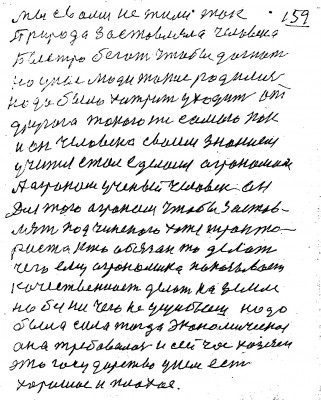 мы свами не жили так 159
Природа заставляла человека
быстро бегат чтобы догнат
но умые люди такие родилис
надо было хитрит уходит от
друга такого же самого как
и он человека своим знанием
учится стал сделали агрономам
А агроном ученый человек он
для того агроном чтобы застов-
лят подчиненого тоже тракто-
риста кто обязан то делат
чего ему агрономика показывает
качественает делат на земли
но бы ни чего не ущибали надо
была сила тогда экономическая
она требовалас и сейчас хозяин
это государство унем ест
хорошое и плохая.